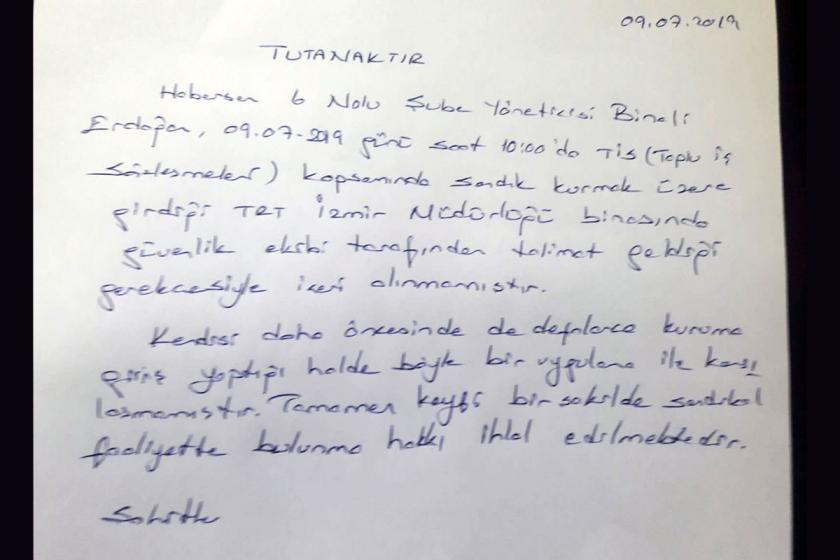 09.07.2019
TUTANAKTIR
Habersen 6 Nolu Şube Yöneticisi Binali
Erdoğan, 09.07.2019 günü saat 10:00'da TİS (Toplu iş
Sözleşmeleri) kapsamında sandık kurmak üzere
girdiği TRT İzmir Müdürlüğü binasında
güvenlik ekibi tarafından talimat geldiği
gerekçesiyle içeri alınmamıştır.
Kendisi daha öncesinde de defalarca kuruma
giriş yaptığı halde böyle bir uygulama ile karşı
laşmamıştır. Tamamen keyfi bir şekilde sendikal
faaliyette bulunma hakkı ihlal edilmektedir.